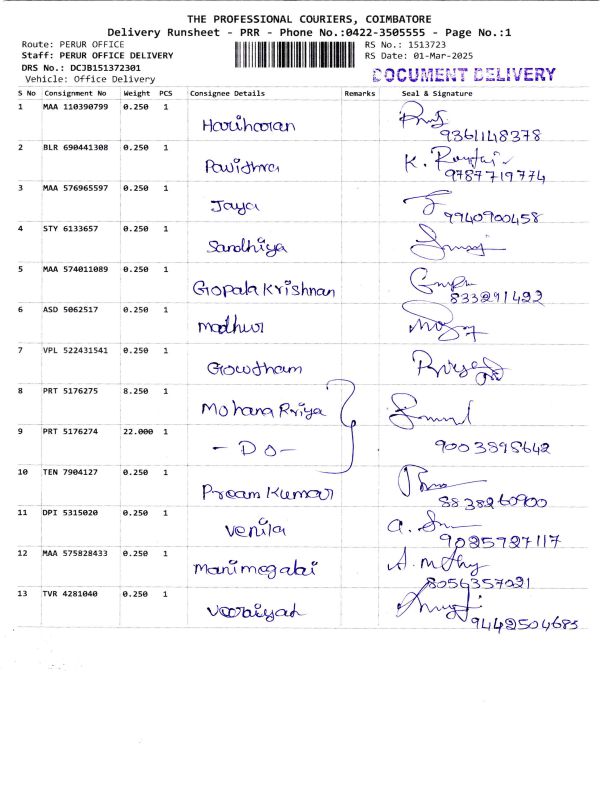 THE PROFESSIONAL COURIERS, COIMBATORE
Delivery Runsheet - PRR - Phone No.:0422-3505555 - Page No.:1
Route: PERUR OFFICE RS No.: 1513723
Staff: PERUR OFFICE DELIVERY RS Date: 01-Mar-2025
DRS No.: DCJB151372301
Vehicle: Office Delivery DOCUMENT DELIVERY
S No Consignment No Weight PCS Consignee Details Remarks Seal & Signature
1 MAA 110390799 0.250 1
Hariharan
9361148378
2 BLR 690441308 0.250 1
Pavithra K.
9787719774
3 MAA 576965597 0.250 1
Jaya
9940900458
4 STY 6133657 0.250 1
Sandhiya
5 MAA 574011089 0.250 1
Gopala Krishnan
833291492
6 ASD 5062517 0.250 1
Madhu
7 VPL 522431541 0.250 1
Gowtham
8 PRT 5176275 8.250 1
Mohana Priya
9 PRT 5176274 22.000 1
- DO -
9003898642
10 TEN 7904127 0.250 1
Prem Kumar
8838260900
11 DPI 5315020 0.250 1
Venila
9025727117
12 MAA 575828433 0.250 1
Manimegalai
8056357021
13 TVR 4281040 0.250 1
Veeraiyah
9442504683